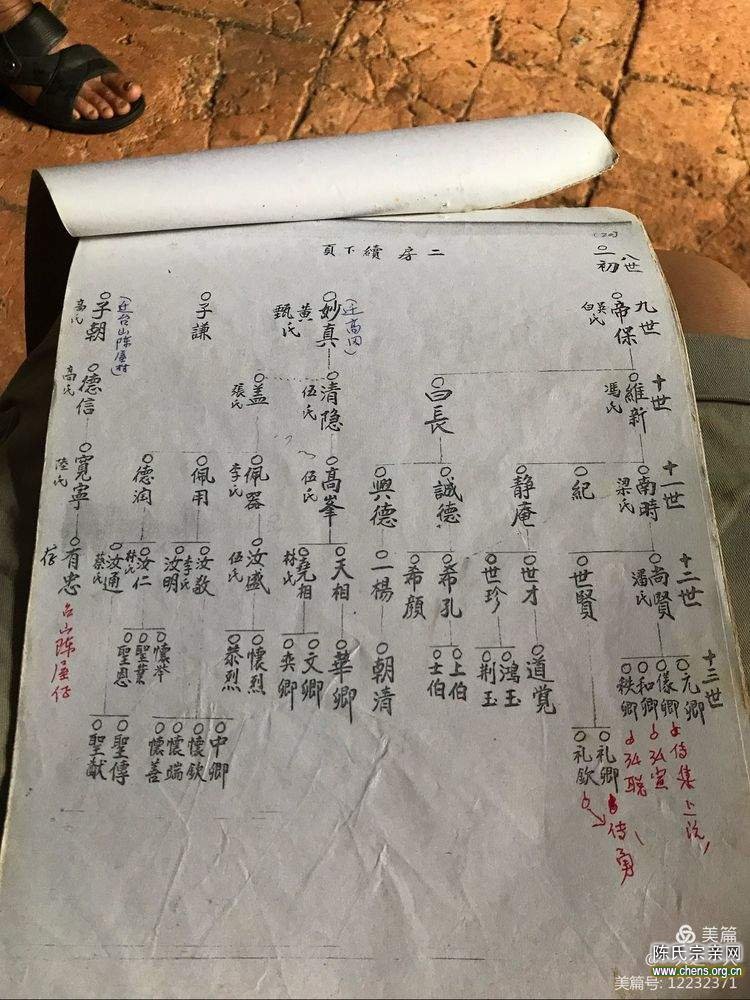 二房續下頁
(20)
八世
初一
九世
帝保
吳氏
白氏
(迁高田)
妙真
黄氏
甄氏
子謙
(迁台山陈屋村)
子朝
高氏
十世
維新
馮氏
白長
清隐
伍氏
盖
張氏
德信
高氏
十一世
南時
梁氏
紀
静庵
誠德
興德
高峯
伍氏
佩器
李氏
佩用
德润
寬寧
陸氏
十二世
尚賢
潘氏
世賢
世才
世珍
希孔
希顏
一楊
天相
堯相
林氏
汝盛
伍氏
汝敬
李氏
汝明
汝仁
林氏
汝通
蔡氏
有忠
台山陈屋伃
十三世
元卿
儀卿
和卿
秩卿
礼卿
礼欽
道覚
鸿玉
荆玉
上伯
士伯
朝清
華卿
文卿
奕卿
懷烈
恭烈
中卿
懷欽
懷端
懷善
懷举
聖業
聖恩
聖傳
聖猷
美篇
陈氏宗亲网
www.chens.org.cn
美篇号: 12232371